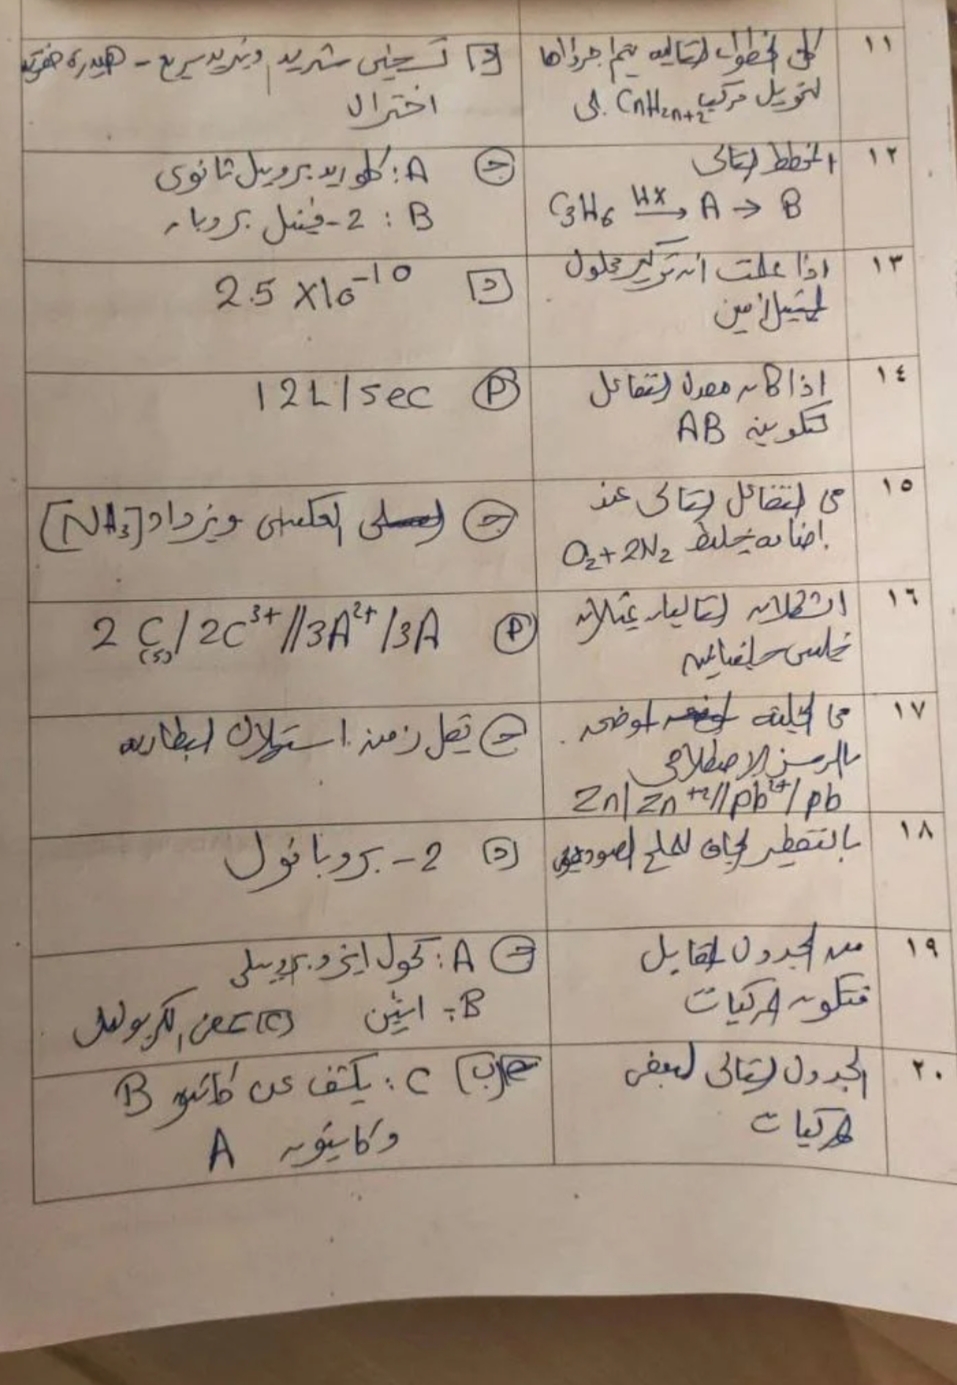 ١١
كل الخطوات التالية يتم اجراؤها
لتحويل مركب CnH2n+2 الى
د تسخين شديد وتبريد سريع - هيدرة حفزية
اختزال
١٢
المخطط التالى
C3H6 HX→ A → B
ج A: كلوريد بروبيل ثانوى
B: 2-فينيل بروبان
١٣
اذا علمت ان تركيز محلول
الميثيل امين
د 2.5 X10-10
١٤
اذا كان معدل التفاعل
لتكوين AB
P 12L/sec
١٥
فى التفاعل التالى عند
اضافة خليط O2+2N2
ج العكسى ويزداد [NH3]
١٦
الشكلان التاليان يمثلان
خليتين جلفانيتين
P 2C(s)/2C3+//3A2+/3A
١٧
فى الخلية الموضحة
بالرمز الاصطلاحى
Zn/Zn+2//Pb2+/Pb
ج تقل زمن استهلاك البطارية
١٨
بالتقطير الجاف للملح الصوديومى
د 2-بروبانول
١٩
من الجدول المقابل
فتكون المركبات
ج A: كحول ايزوبروبيلى
B: ايثين C: حمض الكربوليك
٢٠
الجدول التالى لبعض
المركبات
ب C: يكشف عن كاتيون B
وكاتيون A